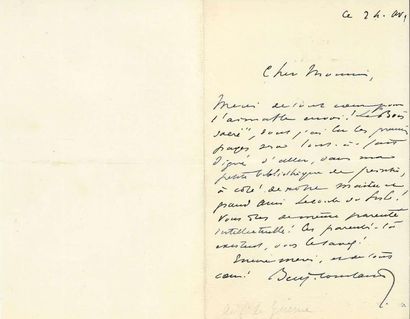 Ce 24.
Cher
Merci de tout cœur pour
l'aimable envoi! Le Bois
sacré", dont j'ai lu les premières
pages sera tout-à-fait
digne d'aller, dans ma
petite bibliothèque de peintre,
à côté de notre maître et
grand ami Leconte de Lisle!
Vous êtes de même parenté
intellectuelle! Ces parentés-là
existent, vous le savez!
Encore merci, et de tout
cœur! Benj-Constant